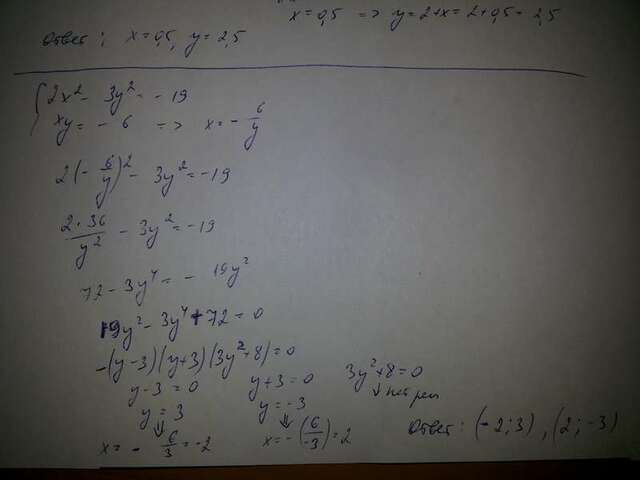 x = 0,5 => y = 2 + x = 2 + 0,5 = 2,5
Ответ: x = 0,5, y = 2,5
{ 2x² - 3y² = - 19
xy = - 6 => x = - 6/y
2(- 6/y)² - 3y² = -19
2·36/y² - 3y² = -19
72 - 3y⁴ = - 19y²
19y² - 3y⁴ + 72 = 0
-(y-3)(y+3)(3y²+8) = 0
y - 3 = 0 y + 3 = 0 3y² + 8 = 0
y = 3 y = -3 ↓ нет реш
⇓ ⇓
x = - 6/3 = -2 x = - (6/-3) = 2 Ответ: (-2; 3), (2; -3)